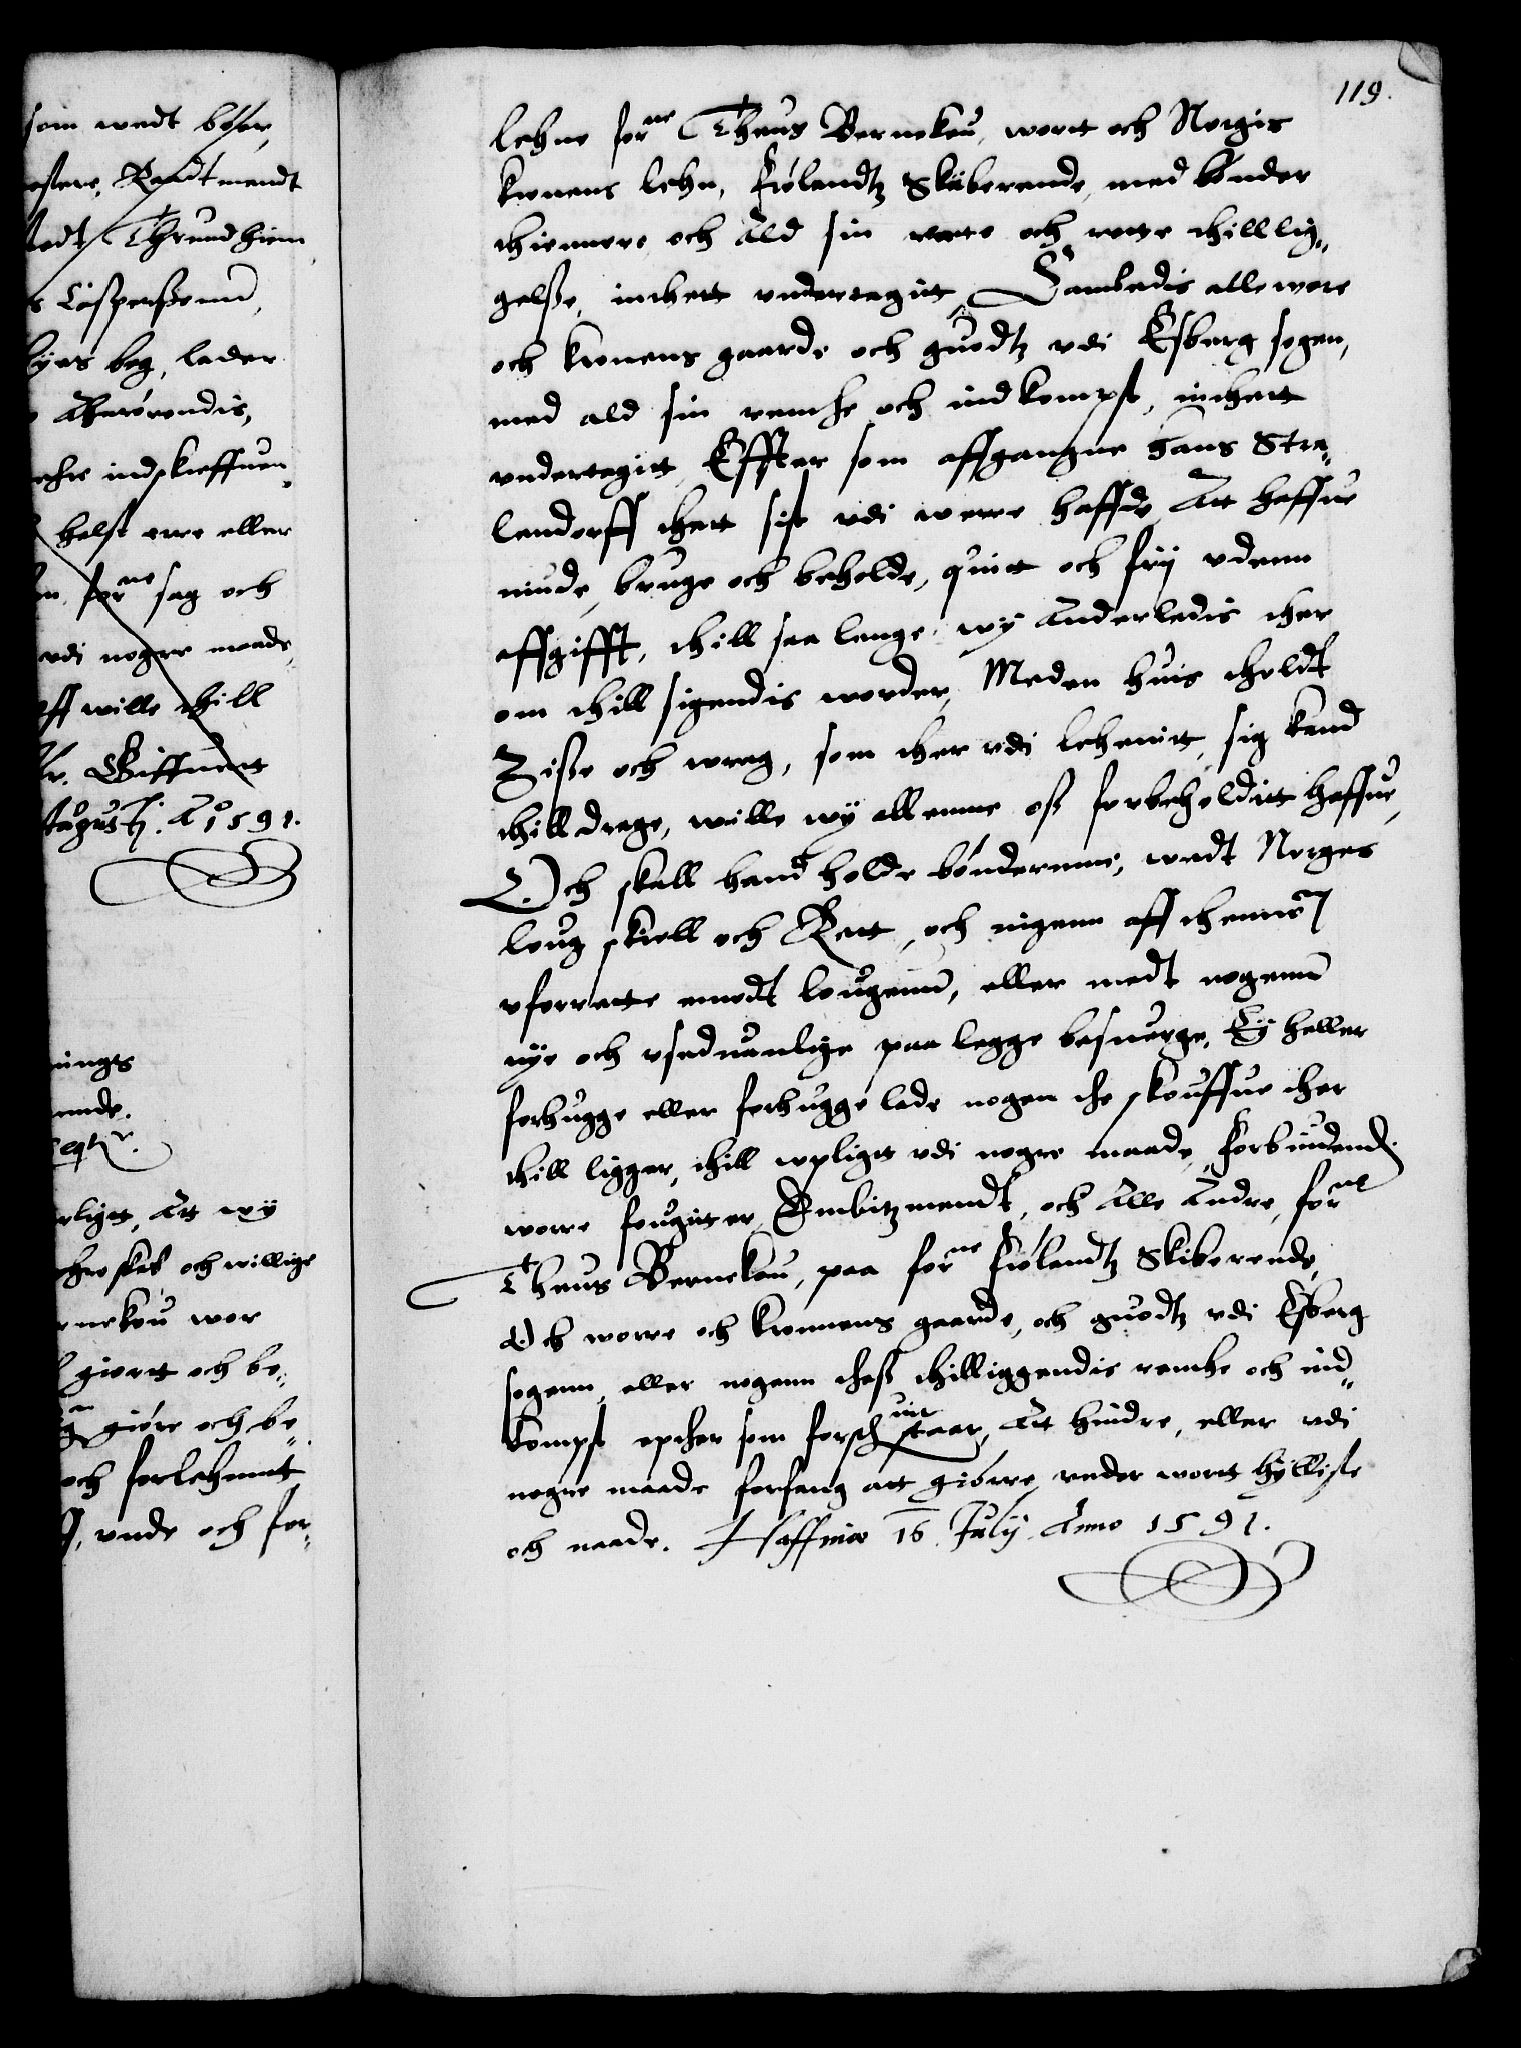 som wedt böser,
østere, Rendtmendt
stedt Thrundhiem
s Caspersßenn,
byes bog, lader
Anrörendis,
indskreffuen
helst erre eller
for^ne sag och
udi nogre maade,
aff wille thill
Giffuent
Augusti. A° 1591.
nings
nnde.
etc.
erligt, At wy
throskab och willige
rnekou wor
giort och be„
giöre och be„
och forlehennt
unde och for„
119.
lehne for^ne Theus Bernekou, wort och Norgis
kronens lehn, Frölandtz Skiberende, med bönder
thiennere och Ald sin rette och rette thilllig„
gelße, inthett undertagitt, Sameledis alle wore
och kronens gaarde och guodtz udi Esberg sogen,
med ald sin renthe och indkompst, inthett
undertagitt, Effter som affgangne Hans Stra„
lendorff thett sist udi werre haffde, Att haffue
niude, bruge och beholde, quitt och frij udenn
affgifft, thill saa lenge wÿ Anderledis ther
om thill sigendis worder, Meden huis tholdt
Ziße och wrag, som ther udi lehenitt, sig kand
thilldrage, wille wÿ allenne oß forbeholditt haffue,
Och skall hand holde bönderenne, wedt Norges
loug skiell och Rett, och ingenn aff thennom
uforrette emodt lougenn, eller medt nogenn
nÿe och usedwanlige paalegge besuerge, Eÿ heller
forhugge eller forhugge lade nogen the skouffue ther
thill ligger, thill upligt udi nogre maade, Forbiudendis
worre fougitter Embitzmendt, och Alle Andre, for^ne
Theus Bernekou, paa for^ne Frölandtz Skiberende,
Och worre och kronnens gaarde, och guodtz udi Esberg
sogenn, eller nogenn theß thilliggendis renthe och ind„
kompst epther som forschreffuit staar, Att hindre, eller udi
nogre maade forfang att giörre, under wort hÿlliste
och naade. Haffniæ 16 Julÿ Anno 1591.